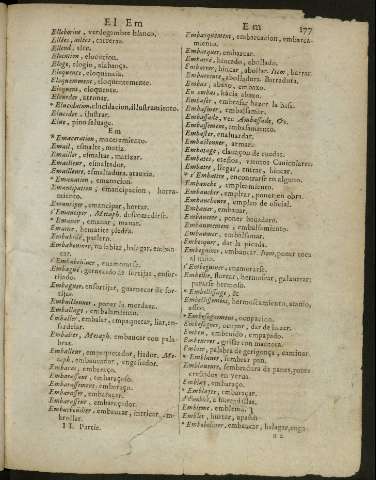 El Em
Em 177
Elleborine, verdegambre blanco.
Elles, ailes, carreras.
Ellend, alce.
Elocution, elocucion.
Eloge, elogio, alabança.
Eloquence, eloquencia.
Eloquemment, eloquentemente.
Eloquent, eloquente.
Elourder, atronar.
* Elucidation, elucidacion, illustramiento.
Elucider, ilustrar.
Elue, pino saluage.
Em
* Emaceration, maceramiento.
Email, esmalte, matiz.
Emailler, esmaltar, matizar.
Emailleur, esmaltador.
Emailleure, esmaltadura, atauxia.
* Emanation, emanacion.
Emancipation, emancipacion, horramiento.
Emanciper, emancipar, horrar.
s'Emanciper, Metaph. desmedirse.
* Emaner, emanar, manar.
Emase, hematice piedra.
Embabillé, parlero.
Embabouiner, embobar, halagar, embaucar.
s'Embabouiner, enamorarse.
Embagué, guarnecido de sortijas, ensortijado.
Embaguer, ensortijar, guarnecer de sortijas.
Embaillonner, poner la mordaza.
Emballage, embalamiento.
Emballer, embalar, empaquetar, liar, enfardelar.
Emballer, Metaph. embaucar con palabras.
Emballeur, empaquetador, liador. Metaph. embaucador, engañador.
Embaras, embaraço.
Embarassant, embaraçoso.
Embarassement, embaraço.
Embarasser, embaraçar.
Embarasseur, embaraçador.
Embarbouiller, embaucar, intricar, embrollar.
II. Partie.
Embarquement, embarcacion, embarcamiento.
Embarquer, embarcar.
Embarré, hincado, abollado.
Embarrer, hincar, abollar. Item, barrar.
Embarreure, abolladura, Barradura.
Embas, abaxo, embaxo.
En embas, hàzia abaxo.
Embaser, embasar hazer la basa.
Embasmer, embalsamar.
Embassade, voc. Ambassade, &c.
Embassement, embasamiento.
Embaster, enaluardar.
Embastonner, armar.
Embatage, clauaçon de ruedas.
Embates, etesios, vientos Canicolares.
Embatre, llegar, entrar, hincar.
s'Embatre, encontrarse en alguno.
* Embauche, emplearmiento.
Embaucher, emplear, poner en obra.
Embaucheur, emplea de oficial.
Embauer, embauar.
Embaurrer, poner bauadero.
Embaumement, embalsamiento.
Embaumer, embalsamar.
Embecquer, dar la picada.
Embeguiner, embaucar. Item, poner toca al niño.
s'Embeguiner, enamorarse.
Embellir, florear, hermosear, galanear; pararse hermoso.
* Embellissage, &
Embellissement, hermoseamiento, atauio, asseo.
* Embesongnement, ocupacion.
Embesogner, ocupar, dar de hazer.
Embeu, embeuido, empapado.
Embeurrer, guisar con manteca.
Emblave, palabra de gerigonça, caminar.
* Emblauer, sembrar pan.
Emblaueure, sembradura de panes, panes crecidos en verua.
* Emblay, embaraço.
* Emblayer, embaraçar.
d'Emblée, a hurtadillas.
Embleme, emblema.
Embler, hurtar, apañar.
* Embobeliner, embaucar, halagar, enga-